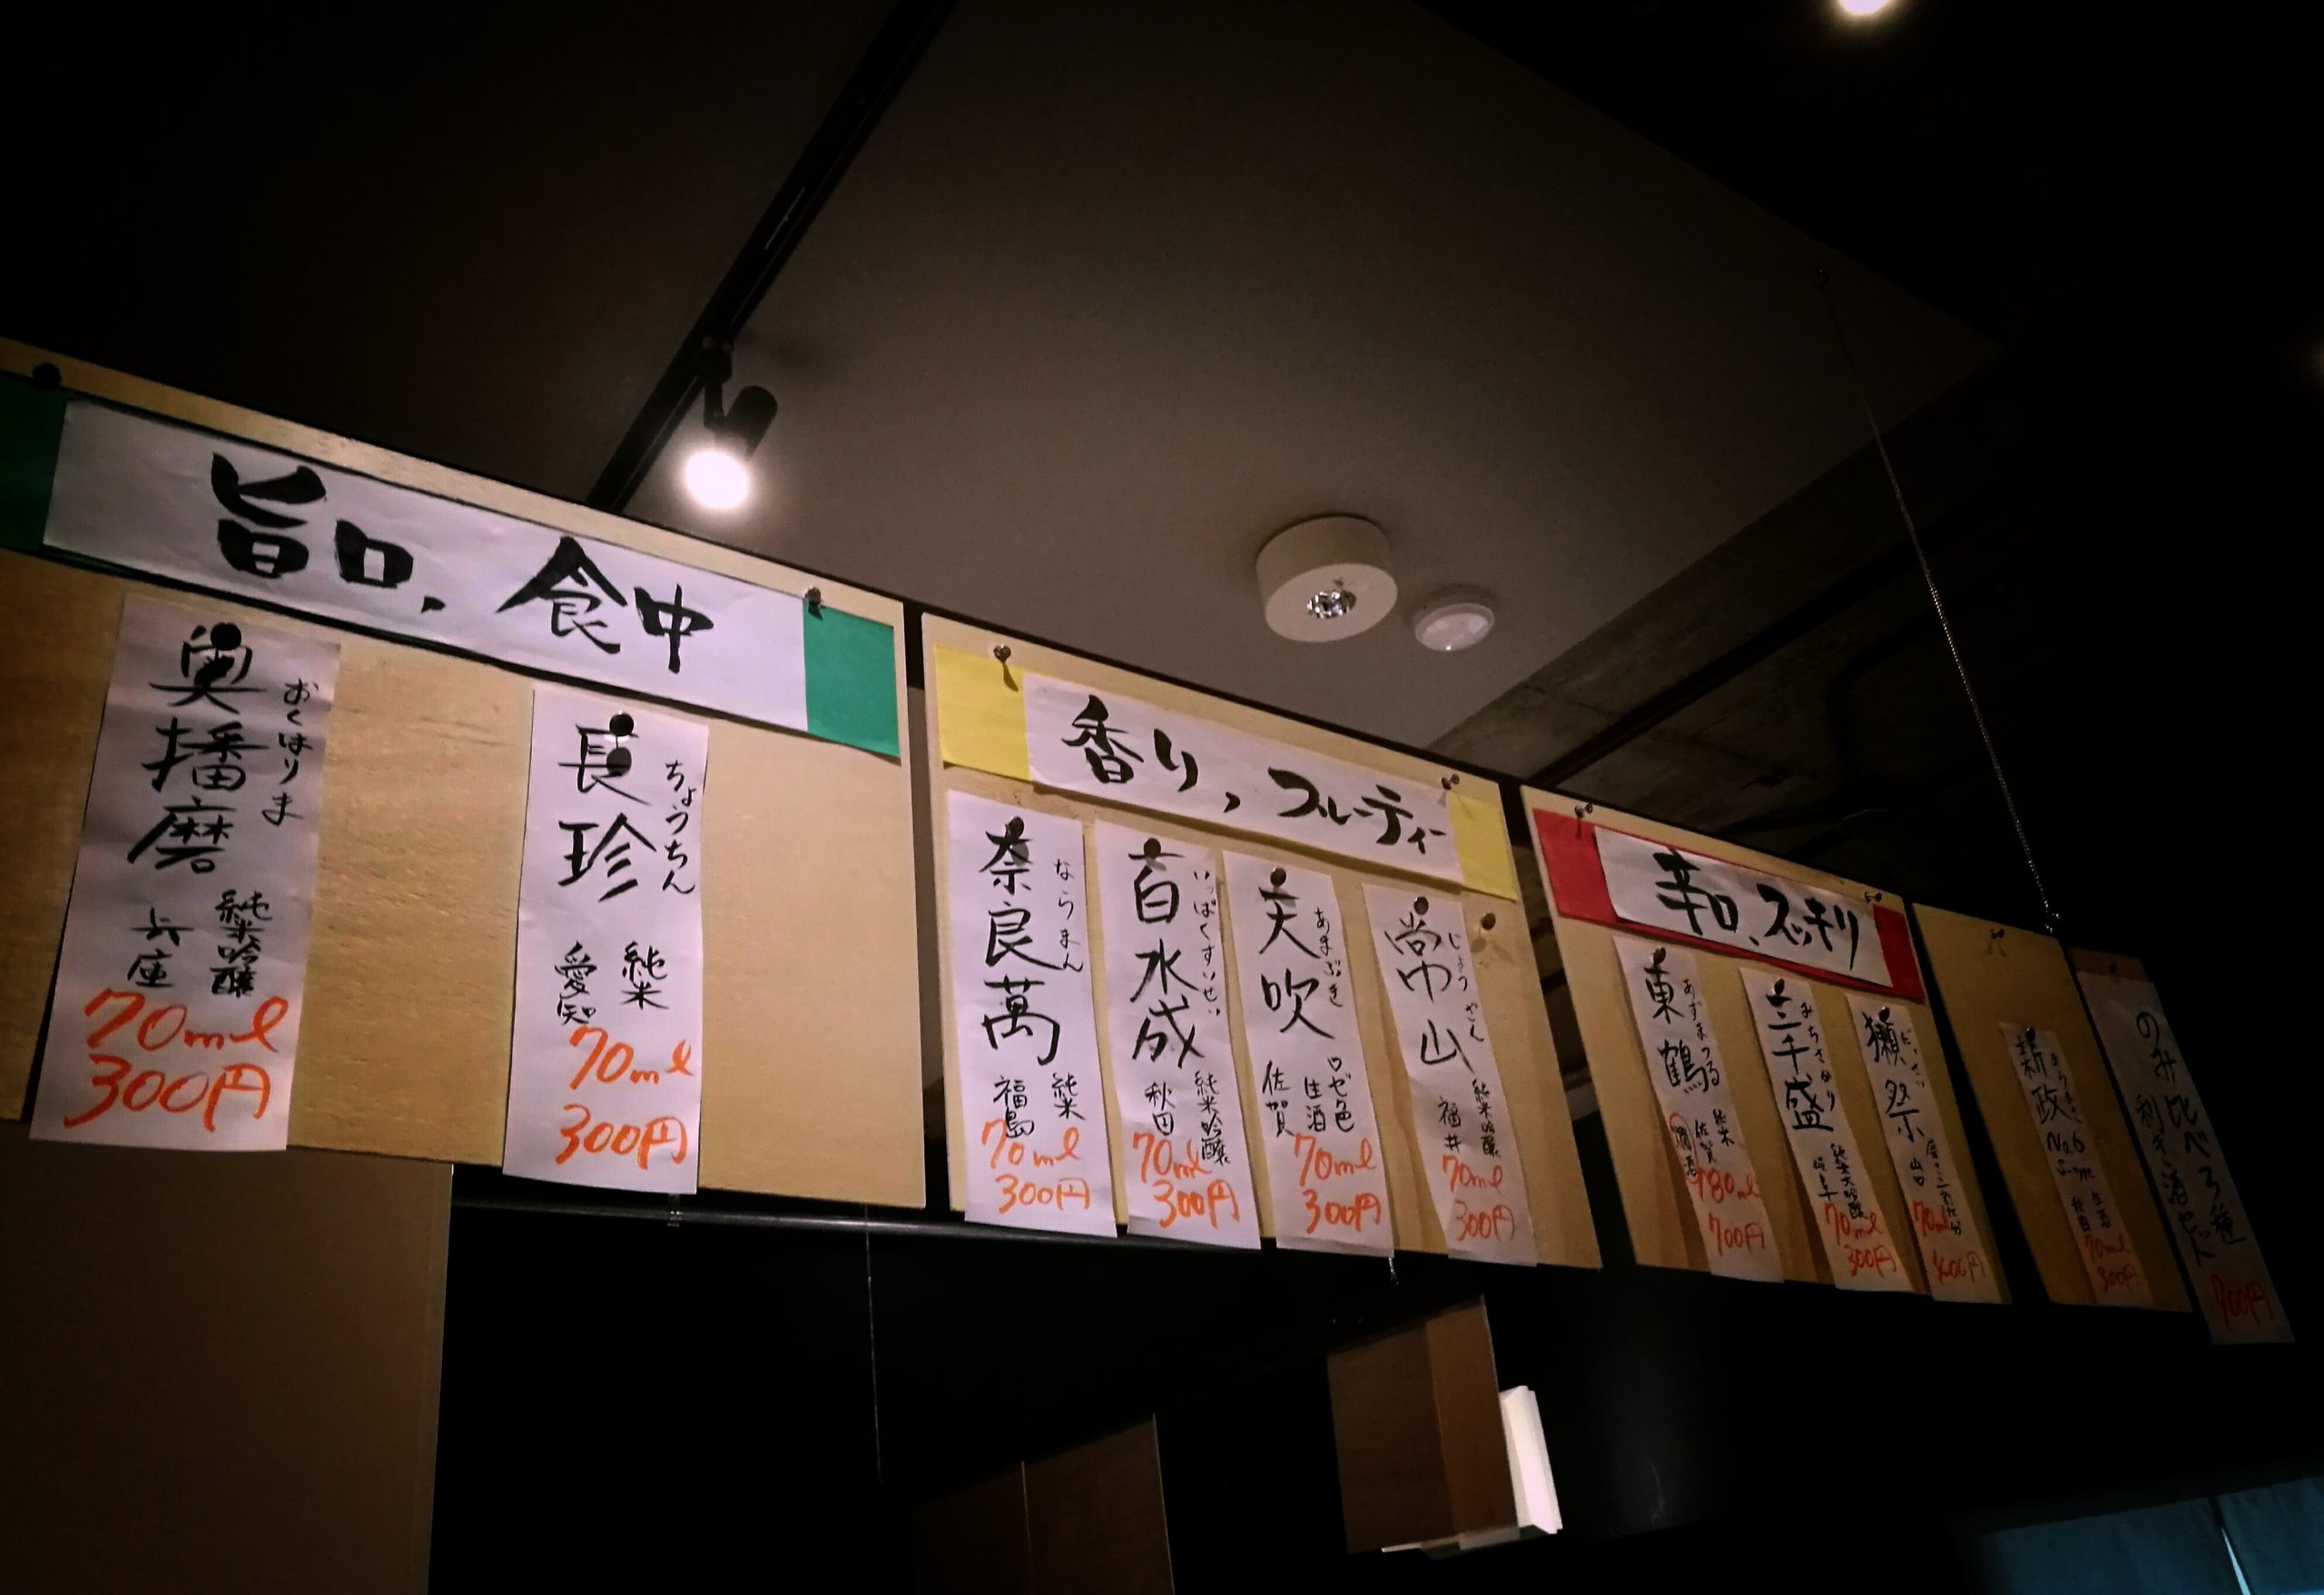 旨口、食中
奥播磨
おくはりま
純米吟醸
兵庫
70ml
300円
長珍
ちょうちん
純米
愛知
70ml
300円
香り、フルーティー
奈良萬
ならまん
純米
福島
70ml
300円
一白水成
いっぱくすいせい
純米吟醸
秋田
70ml
300円
天吹
あまぶき
ロゼ色
生酒
佐賀
70ml
300円
常山
じょうざん
純米吟醸
福井
70ml
300円
辛口、スッキリ
東鶴
あずまつる
純米
佐賀
燗酒
180ml
700円
三千盛
みちさかり
純米大吟醸
岐阜
70ml
300円
獺祭
だっさい
山口
70ml
400円
新政
あらまさ
No.6
S-type
生酒
秋田
70ml
300円
のみ比べ3種
利き酒セット
900円